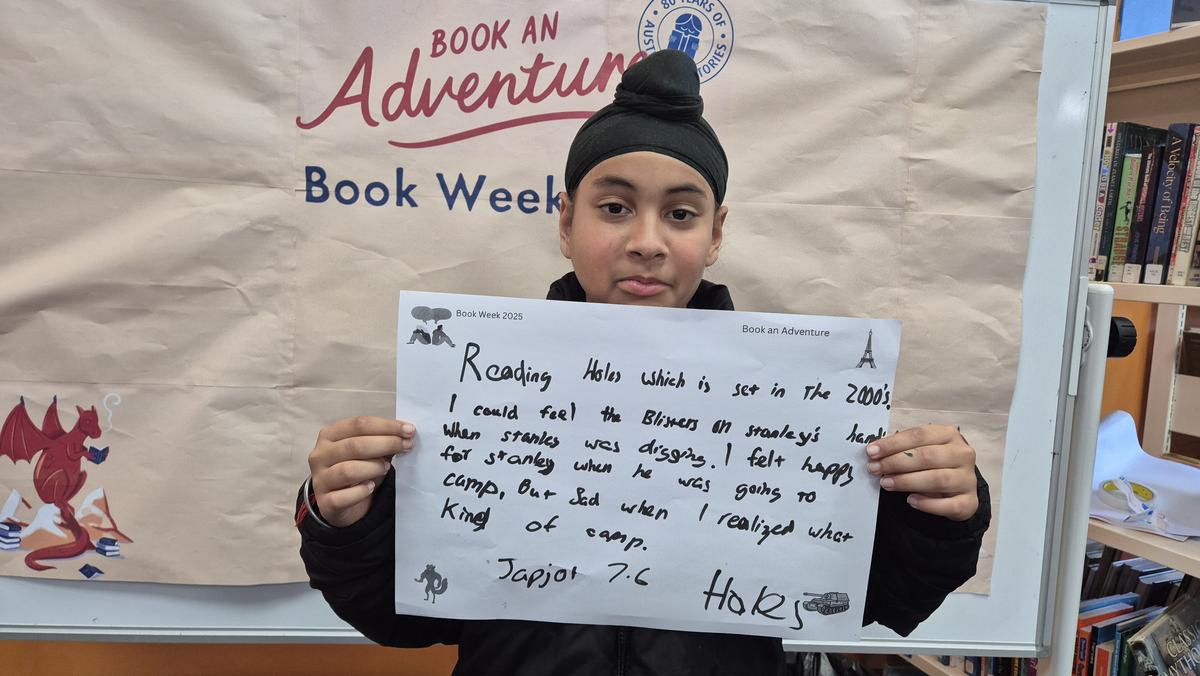 BOOK AN
Adventure
80 YEARS OF
AUST
TORIES
Book Week
A Velocity of Being
Book Week 2025
Book an Adventure
Reading Holes which is set in The 2000's.
I could feel the Blisters on stanley's hand
when stanley was digging. I felt happy
for stanley when he was going to
camp. But Sad when I realized what
Kind of camp.
Japjot 7.6
Holes